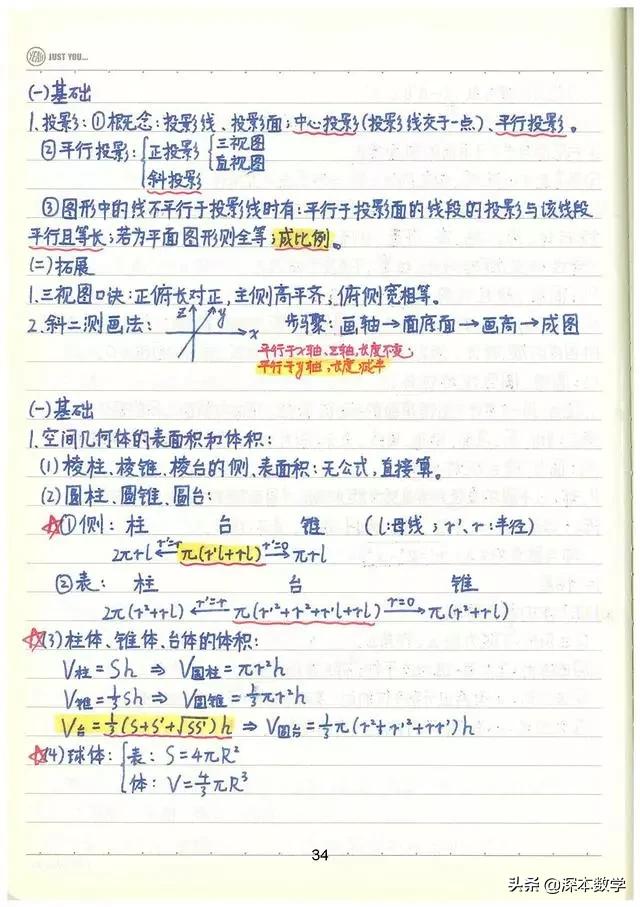 YEAH JUST YOU...
(一)基础
1.投影:①概念:投影线、投影面;中心投影(投影线交于一点)、平行投影。
②平行投影:{正投影{三视图
直视图
斜投影
③图形中的线不平行于投影线时有:平行于投影面的线段的投影与该线段
平行且等长;若为平面图形则全等;成比例。
(二)拓展
1.三视图口诀:正俯长对正,主侧高平齐,俯侧宽相等。
2.斜二测画法: z y x 步骤:画轴→画底面→画高→成图
平行于x轴、z轴,长度不变;
平行于y轴,长度减半
(一)基础
1.空间几何体的表面积和体积:
(1)棱柱、棱锥、棱台的侧、表面积:无公式,直接算。
(2)圆柱、圆锥、圆台:
☆①侧: 柱 台 锥 (l:母线;r'、r:半径)
2πrl ←r'=r π(r'l+rl) r'=0→ πrl
②表: 柱 台 锥
2π(r²+rl) ←r'=r π(r'²+r²+r'l+rl) r=0→ π(r²+rl)
☆(3)柱体、锥体、台体的体积:
V柱=Sh ⇒ V圆柱=πr²h
V锥=⅓Sh ⇒ V圆锥=⅓πr²h
V台=⅓(S+S'+√SS')h ⇒ V圆台=⅓π(r²+r'²+rr')h
☆(4)球体:{表:S=4πR²
体:V=4/3πR³
34
头条@深本数学